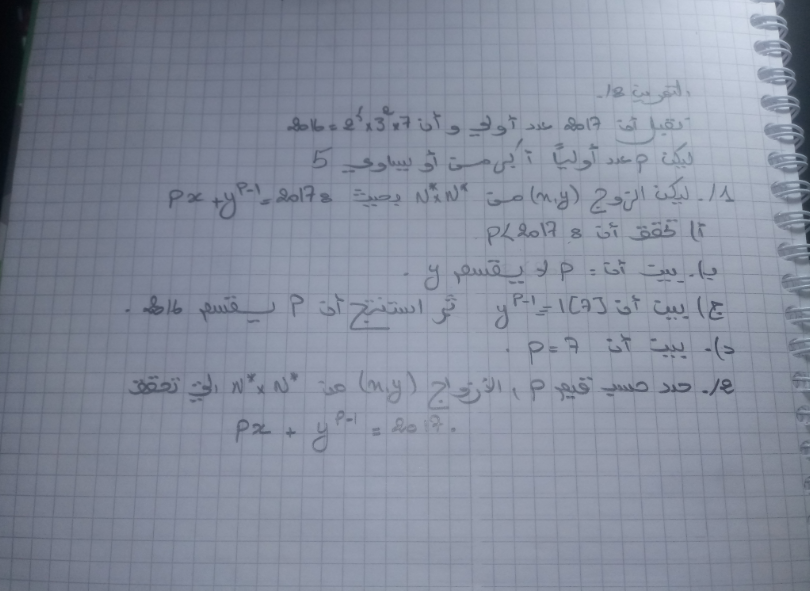 التمرين 2/.
نقبل أن 2017 عدد أولي و أن 2016 = 2⁵×3²×7
ليكن p عدد أوليًا أكبر من أو يساوي 5
1/. ليكن الزوج (x,y) من N*×N* بحيث px + y^{p-1} = 2017 :
أ) تحقق أن : p < 2017
ب). بين أن = p لا يقسم y .
ج) بين أن y^{p-1} ≡ 1 [7] ثم استنتج أن p يقسم 2016 .
د). بين أن p = 7 .
2/. حدد حسب قيم p ، الأزواج (x,y) من N*×N* التي تحقق
px + y^{p-1} = 2017.